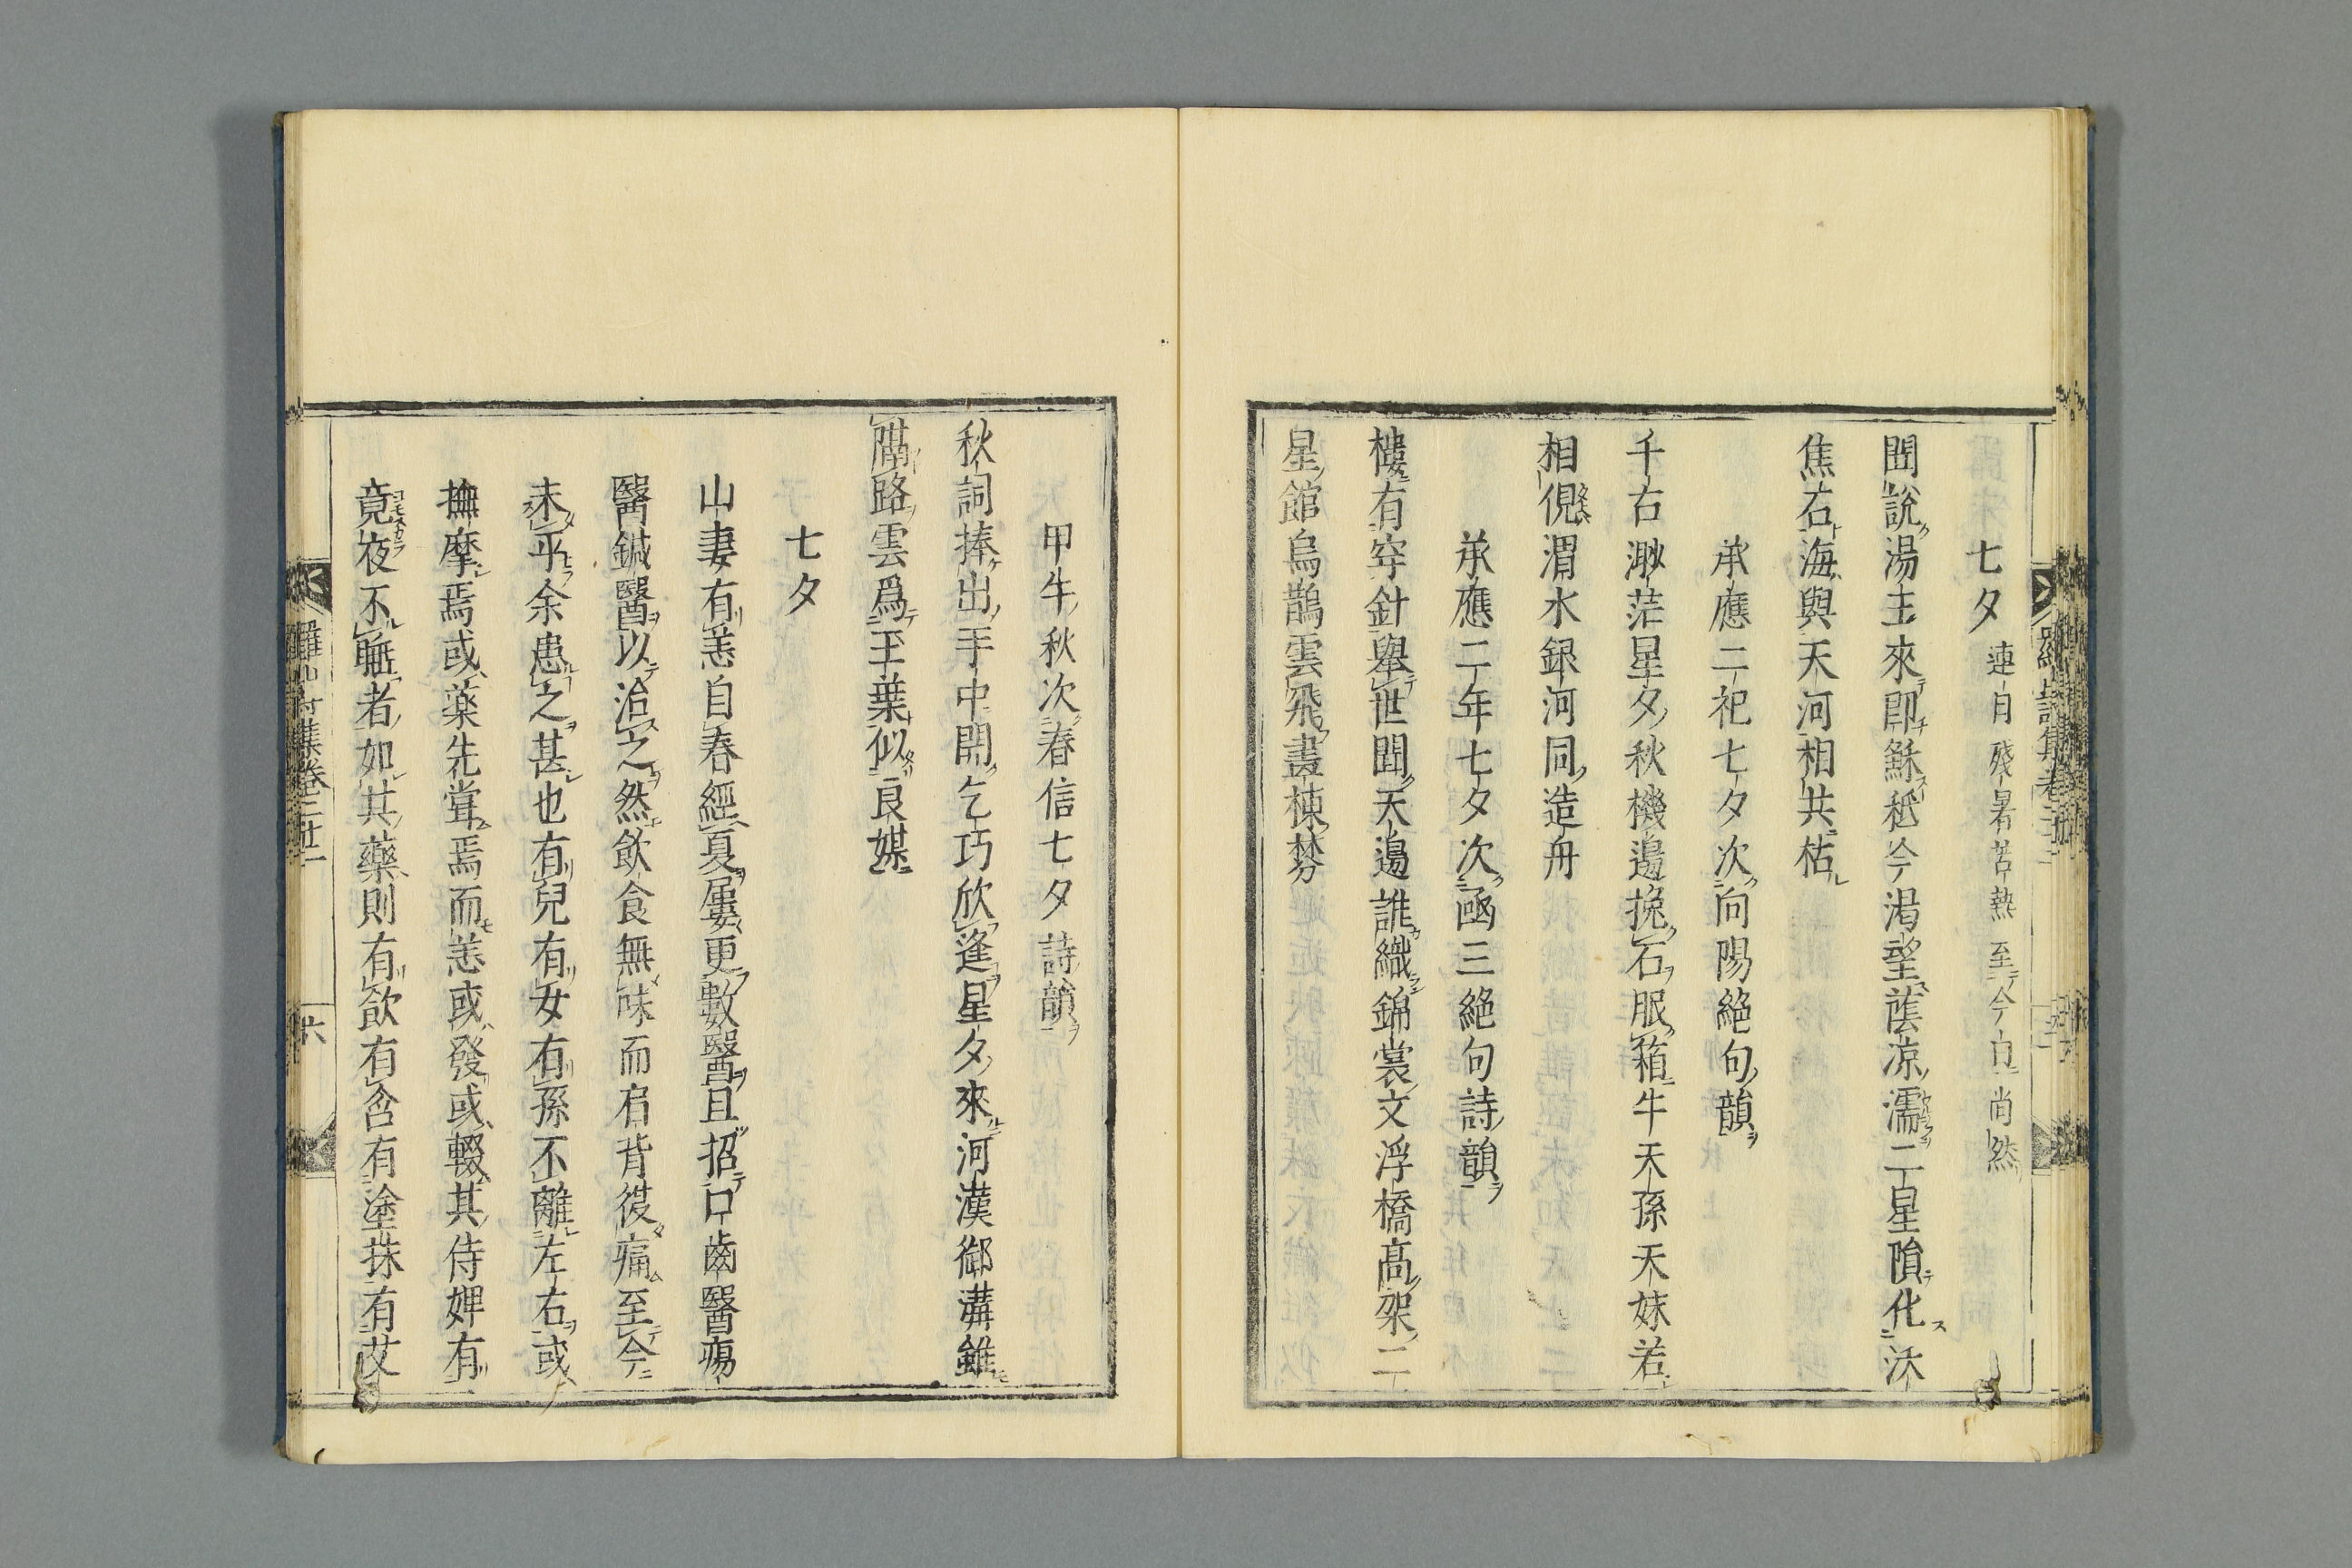 七夕 連日殘暑苦熱至今日尚然
聞說湯王來卽穌秖今渴望蔭凉濡二星隕化沃
焦石海與天河相共枯
承應二祀七夕次向陽絕句韻
千古渺茫星夕秋機邊挽石服箱牛天孫天妹若
相俔渭水銀河同造舟
承應二年七夕次函三絕句詩韻
樓有穿針舉世聞天邊誰織錦裳文浮橋高架二
星館烏鵲雲飛畫棟棼
甲午秋次春信七夕詩韻
秋詞捧出手中開乞巧欣逢星夕來河漢御溝雖
隔路雲爲玉葉似良媒
七夕
山妻有恙自春經夏屢更數醫且招口齒醫瘍
醫鍼醫以治之然飲食無味而肩背復痛至今
未平余患之甚也有兒有女有孫不離左右或
撫摩焉或藥先嘗焉而恙或發或輟其侍婢有
竟夜不寐者如其藥則有飲有含有塗抹有艾
羅山詩集卷三十一
六